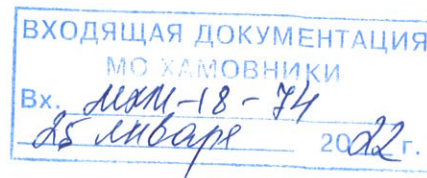 ВХОДЯЩАЯ ДОКУМЕНТАЦИЯ
МО ХАМОВНИКИ
Вх. МХМ-18-74
25 января 2022 г.